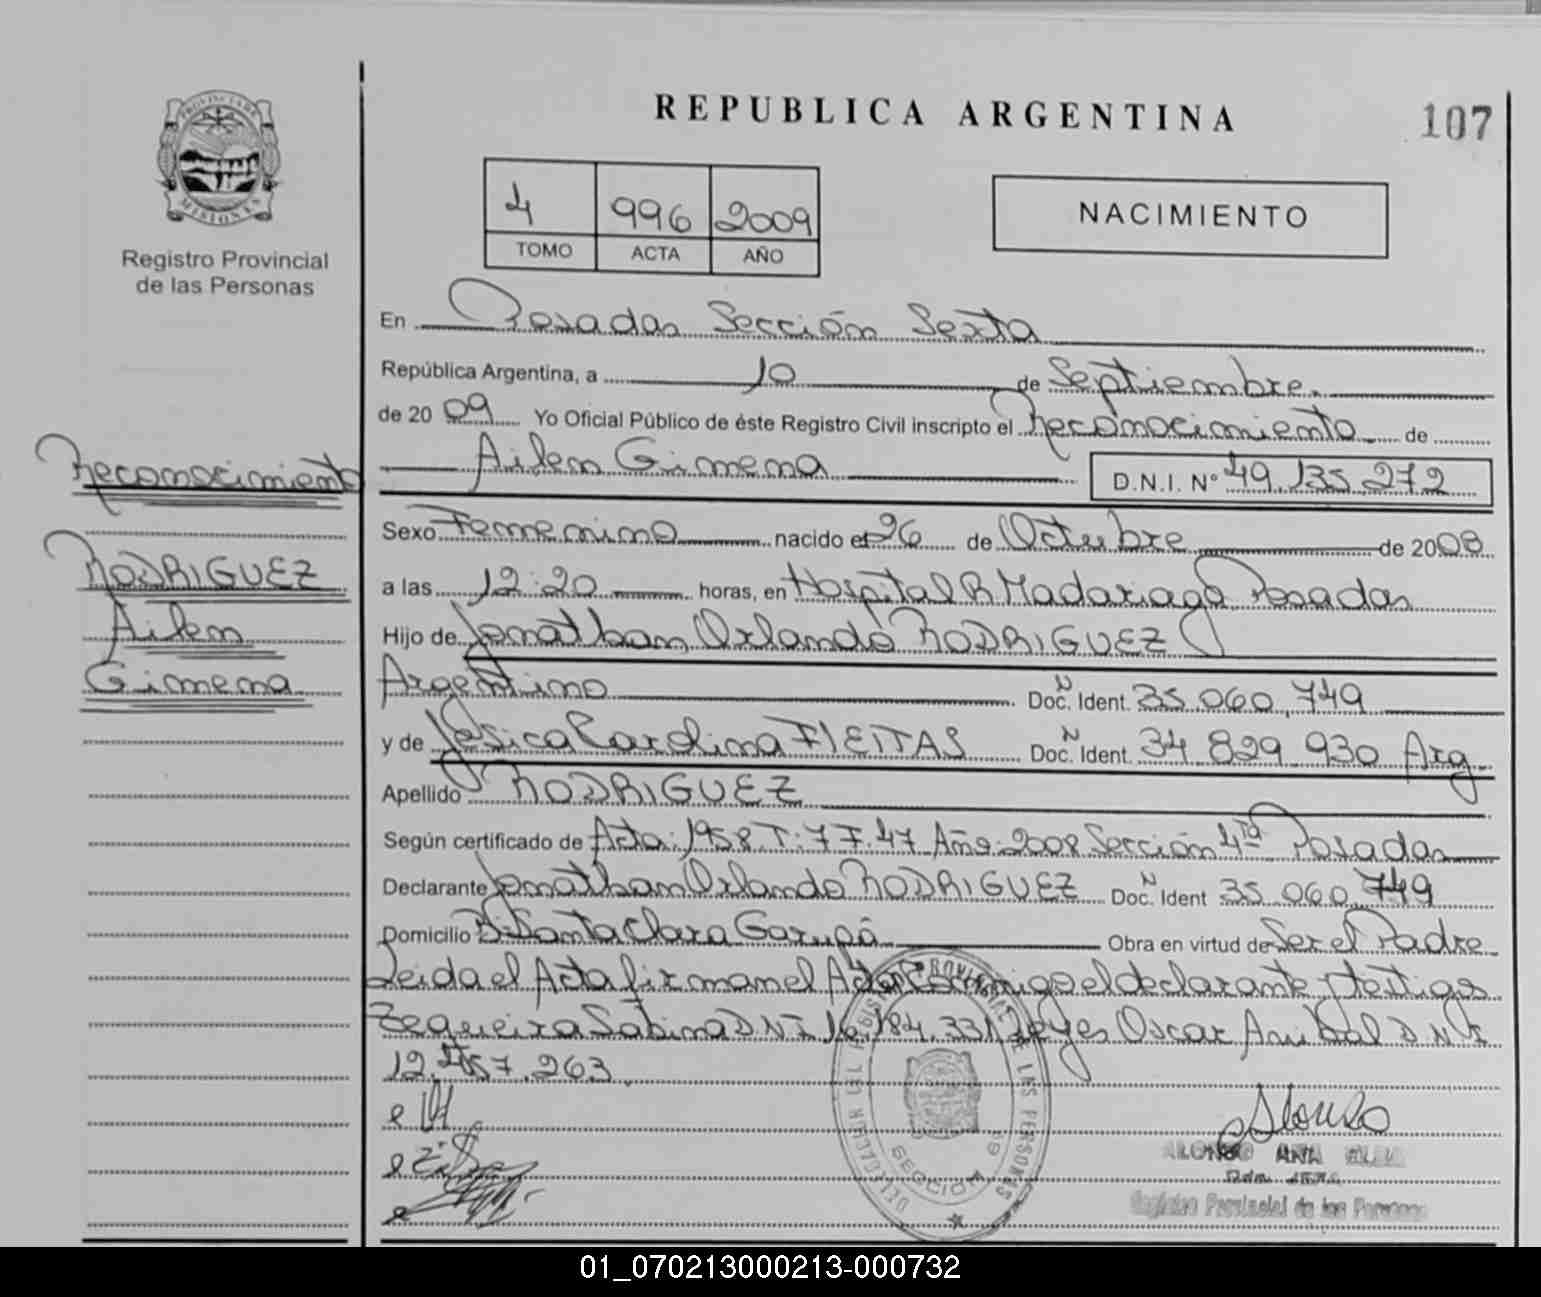 REPUBLICA ARGENTINA
107
PROVINCIA DE
MISIONES
Registro Provincial
de las Personas
4 996 2009
TOMO ACTA AÑO
NACIMIENTO
En Posadas Sección Sexta
República Argentina, a 10 de Septiembre
de 20 09 Yo Oficial Público de éste Registro Civil inscripto el Reconocimiento de
Ailen Gimena D.N.I. N° 49.135.272
Reconocimiento
RODRIGUEZ
Ailen
Gimena
Sexo Femenino nacido el 26 de Octubre de 2008
a las 12:20 horas, en Hospital R Madariaga Posadas
Hijo de Jonathan Orlando RODRIGUEZ
Argentino Doc. N Ident. 35.060.749
y de Yesica Carolina FLEITAS Doc. N Ident. 34 829 930 Arg
Apellido RODRIGUEZ
Según certificado de Acta: 1958 T: 7 F: 47 Año: 2008 Sección 4ta Posadas
Declarante Jonathan Orlando RODRIGUEZ Doc. N Ident 35.060.749
Domicilio B° Santa Clara Garupá Obra en virtud de Ser el Padre
Leida el Acta firman el Acta conmigo el declarante y testigos
Zequeira Sabina D N I 16.184.331 Oscar Anibal D N I
12.457.263
Alonso
ALONSO ANA ELBA
Registro Provincial de las Personas
SECCION
01_070213000213-000732